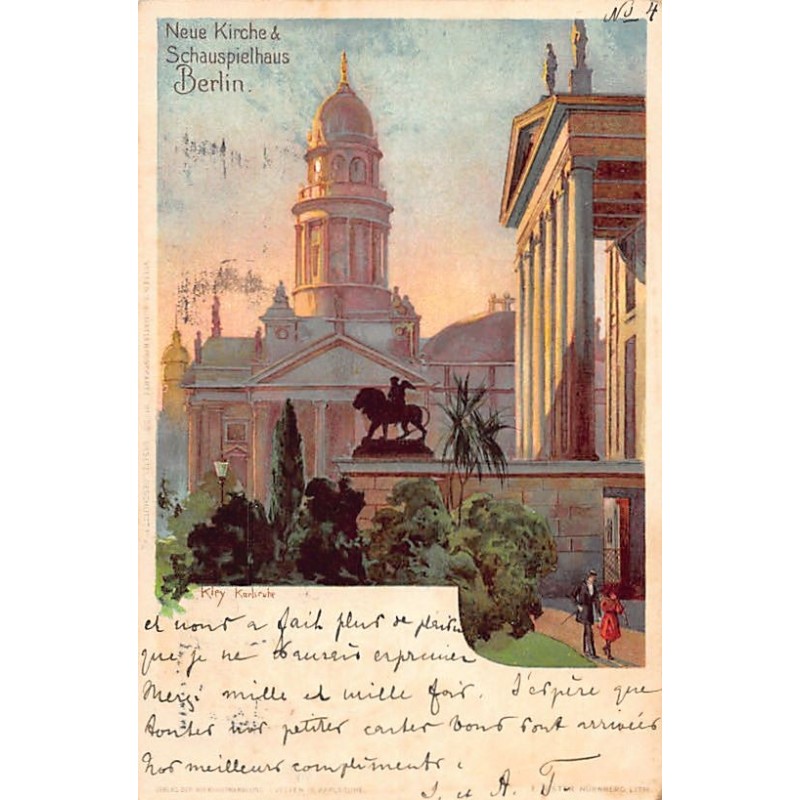 No 4
Neue Kirche &
Schauspielhaus
Berlin.
Kley Karlsruhe
et nous a fait plus de plaisir
que je ne saurais exprimer
Merci mille et mille fois. J'espère que
toutes nos petites cartes vous sont arrivées
Nos meilleurs compliments.
J. et A. T.
NÜRNBERG LITH.